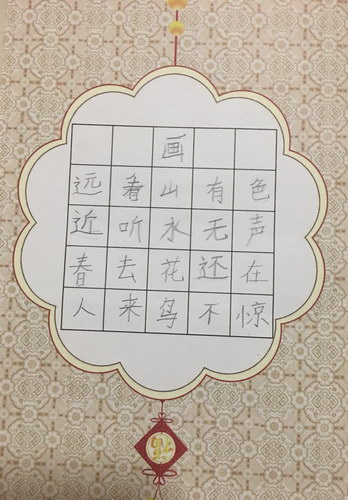 画
远看山有色
近听水无声
春去花还在
人来鸟不惊
福